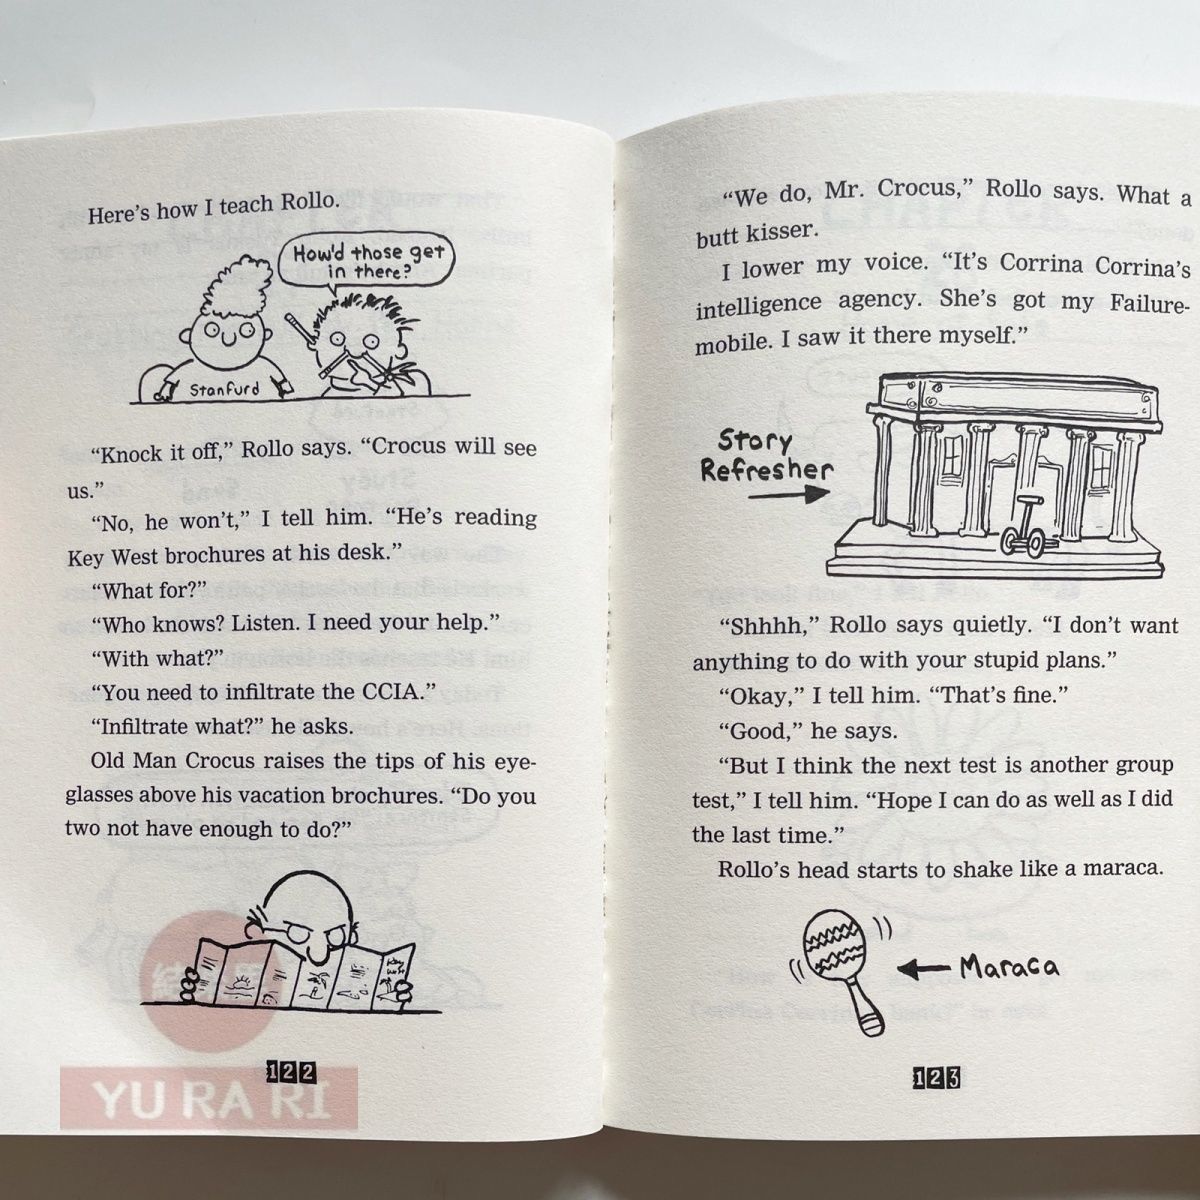 Here's how I teach Rollo.
How'd those get
in there?
Stanfurd
“Knock it off,” Rollo says. “Crocus will see
us.”
“No, he won't,” I tell him. “He's reading
Key West brochures at his desk.”
“What for?”
“Who knows? Listen. I need your help.”
“With what?”
“You need to infiltrate the CCIA.”
“Infiltrate what?” he asks.
Old Man Crocus raises the tips of his eye-
glasses above his vacation brochures. “Do you
two not have enough to do?”
122
YU RA RI
“We do, Mr. Crocus,” Rollo says. What a
butt kisser.
I lower my voice. “It's Corrina Corrina's
intelligence agency. She's got my Failure-
mobile. I saw it there myself.”
Story
Refresher
“Shhhh,” Rollo says quietly. “I don't want
anything to do with your stupid plans.”
“Okay,” I tell him. “That's fine.”
“Good,” he says.
“But I think the next test is another group
test,” I tell him. “Hope I can do as well as I did
the last time.”
Rollo's head starts to shake like a maraca.
Maraca
123